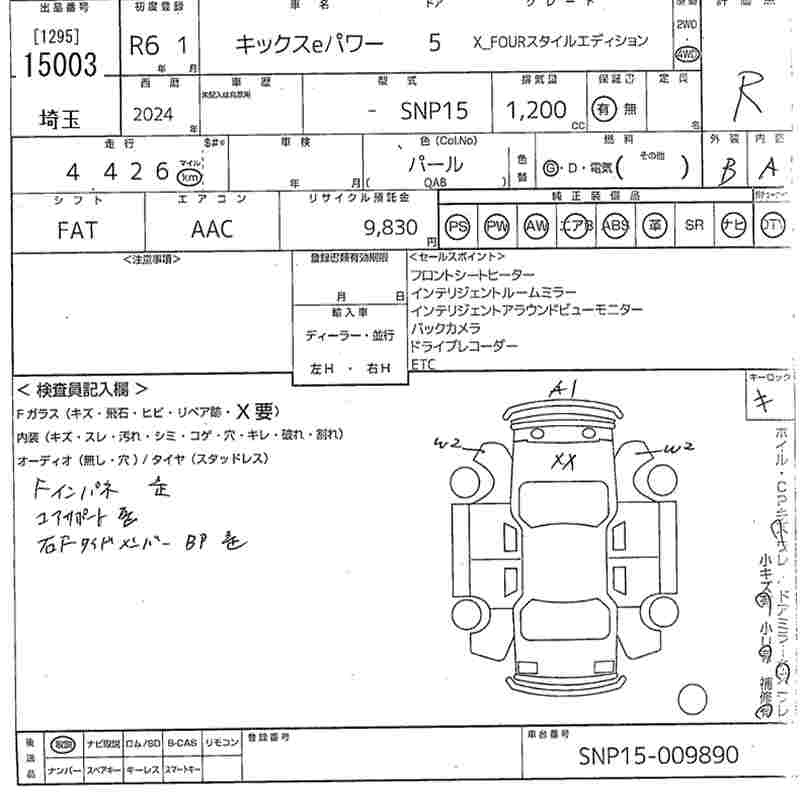 出品番号 初度登録 車名 ドア グレード
[1295]
15003
R6 1
年 月
キックスeパワー 5 X_FOURスタイルエディション
2WD
・
4WD
R
西暦 車歴 型式 排気量 保証書 定員
未記入は自家用
埼玉
2024 年
- SNP15
1,200 CC
有 無
名
走行 車検 色(Col.No) 燃料 外装 内装
4 4 2 6
マイル
km
年 月
パール
( QAB )
色替
G・D・電気( その他 )
B A
シフト エアコン リサイクル預託金 純正装備品
FAT AAC 9,830 円
PS PW AW エアB ABS 革 SR ナビ TV
<注意事項> 登録書類有効期限 <セールスポイント>
月 日
輸入車
ディーラー・並行
左H ・ 右H
フロントシートヒーター
インテリジェントルームミラー
インテリジェントアラウンドビューモニター
バックカメラ
ドライブレコーダー
ETC
<検査員記入欄>
Fガラス(キズ・飛石・ヒビ・リペア跡・X要)
内装(キズ・スレ・汚れ・シミ・コゲ・穴・キレ・破れ・割れ)
オーディオ(無し・穴)/タイヤ(スタッドレス)
Fインパネ 歪
コアサポート 歪
右Fサイドメンバー BP 歪
A1
W2 W2
XX
キーロック
キ
小キズ有 小凹有 補修有
後送品
取説 ナビ取説 ロム/SD B-CAS リモコン
ナンバー スペアキー キーレス スマートキー
登録番号
車台番号
SNP15-009890